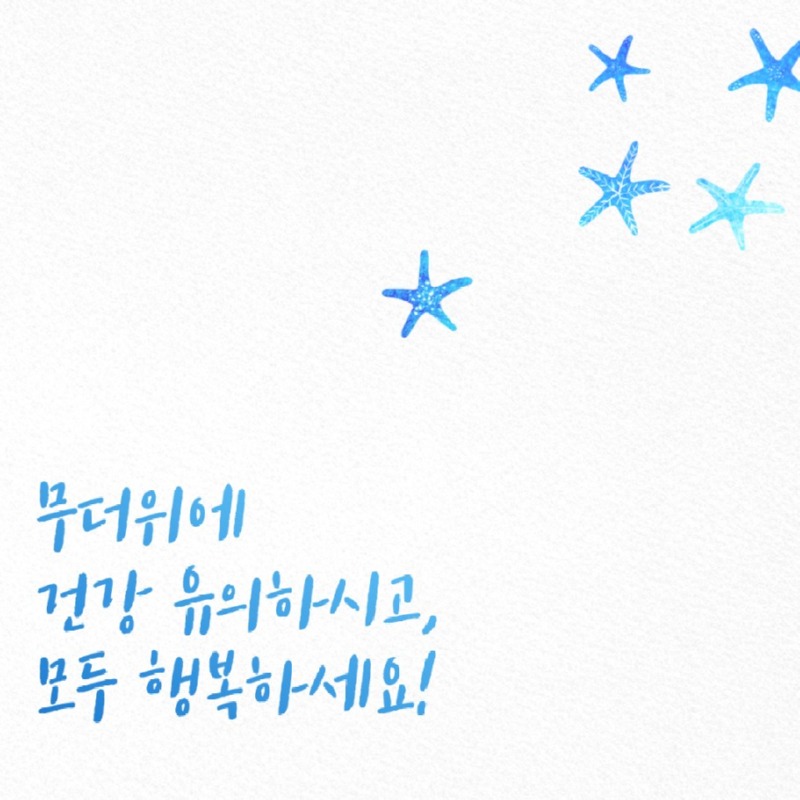 무더위에
건강 유의하시고,
모두 행복하세요!